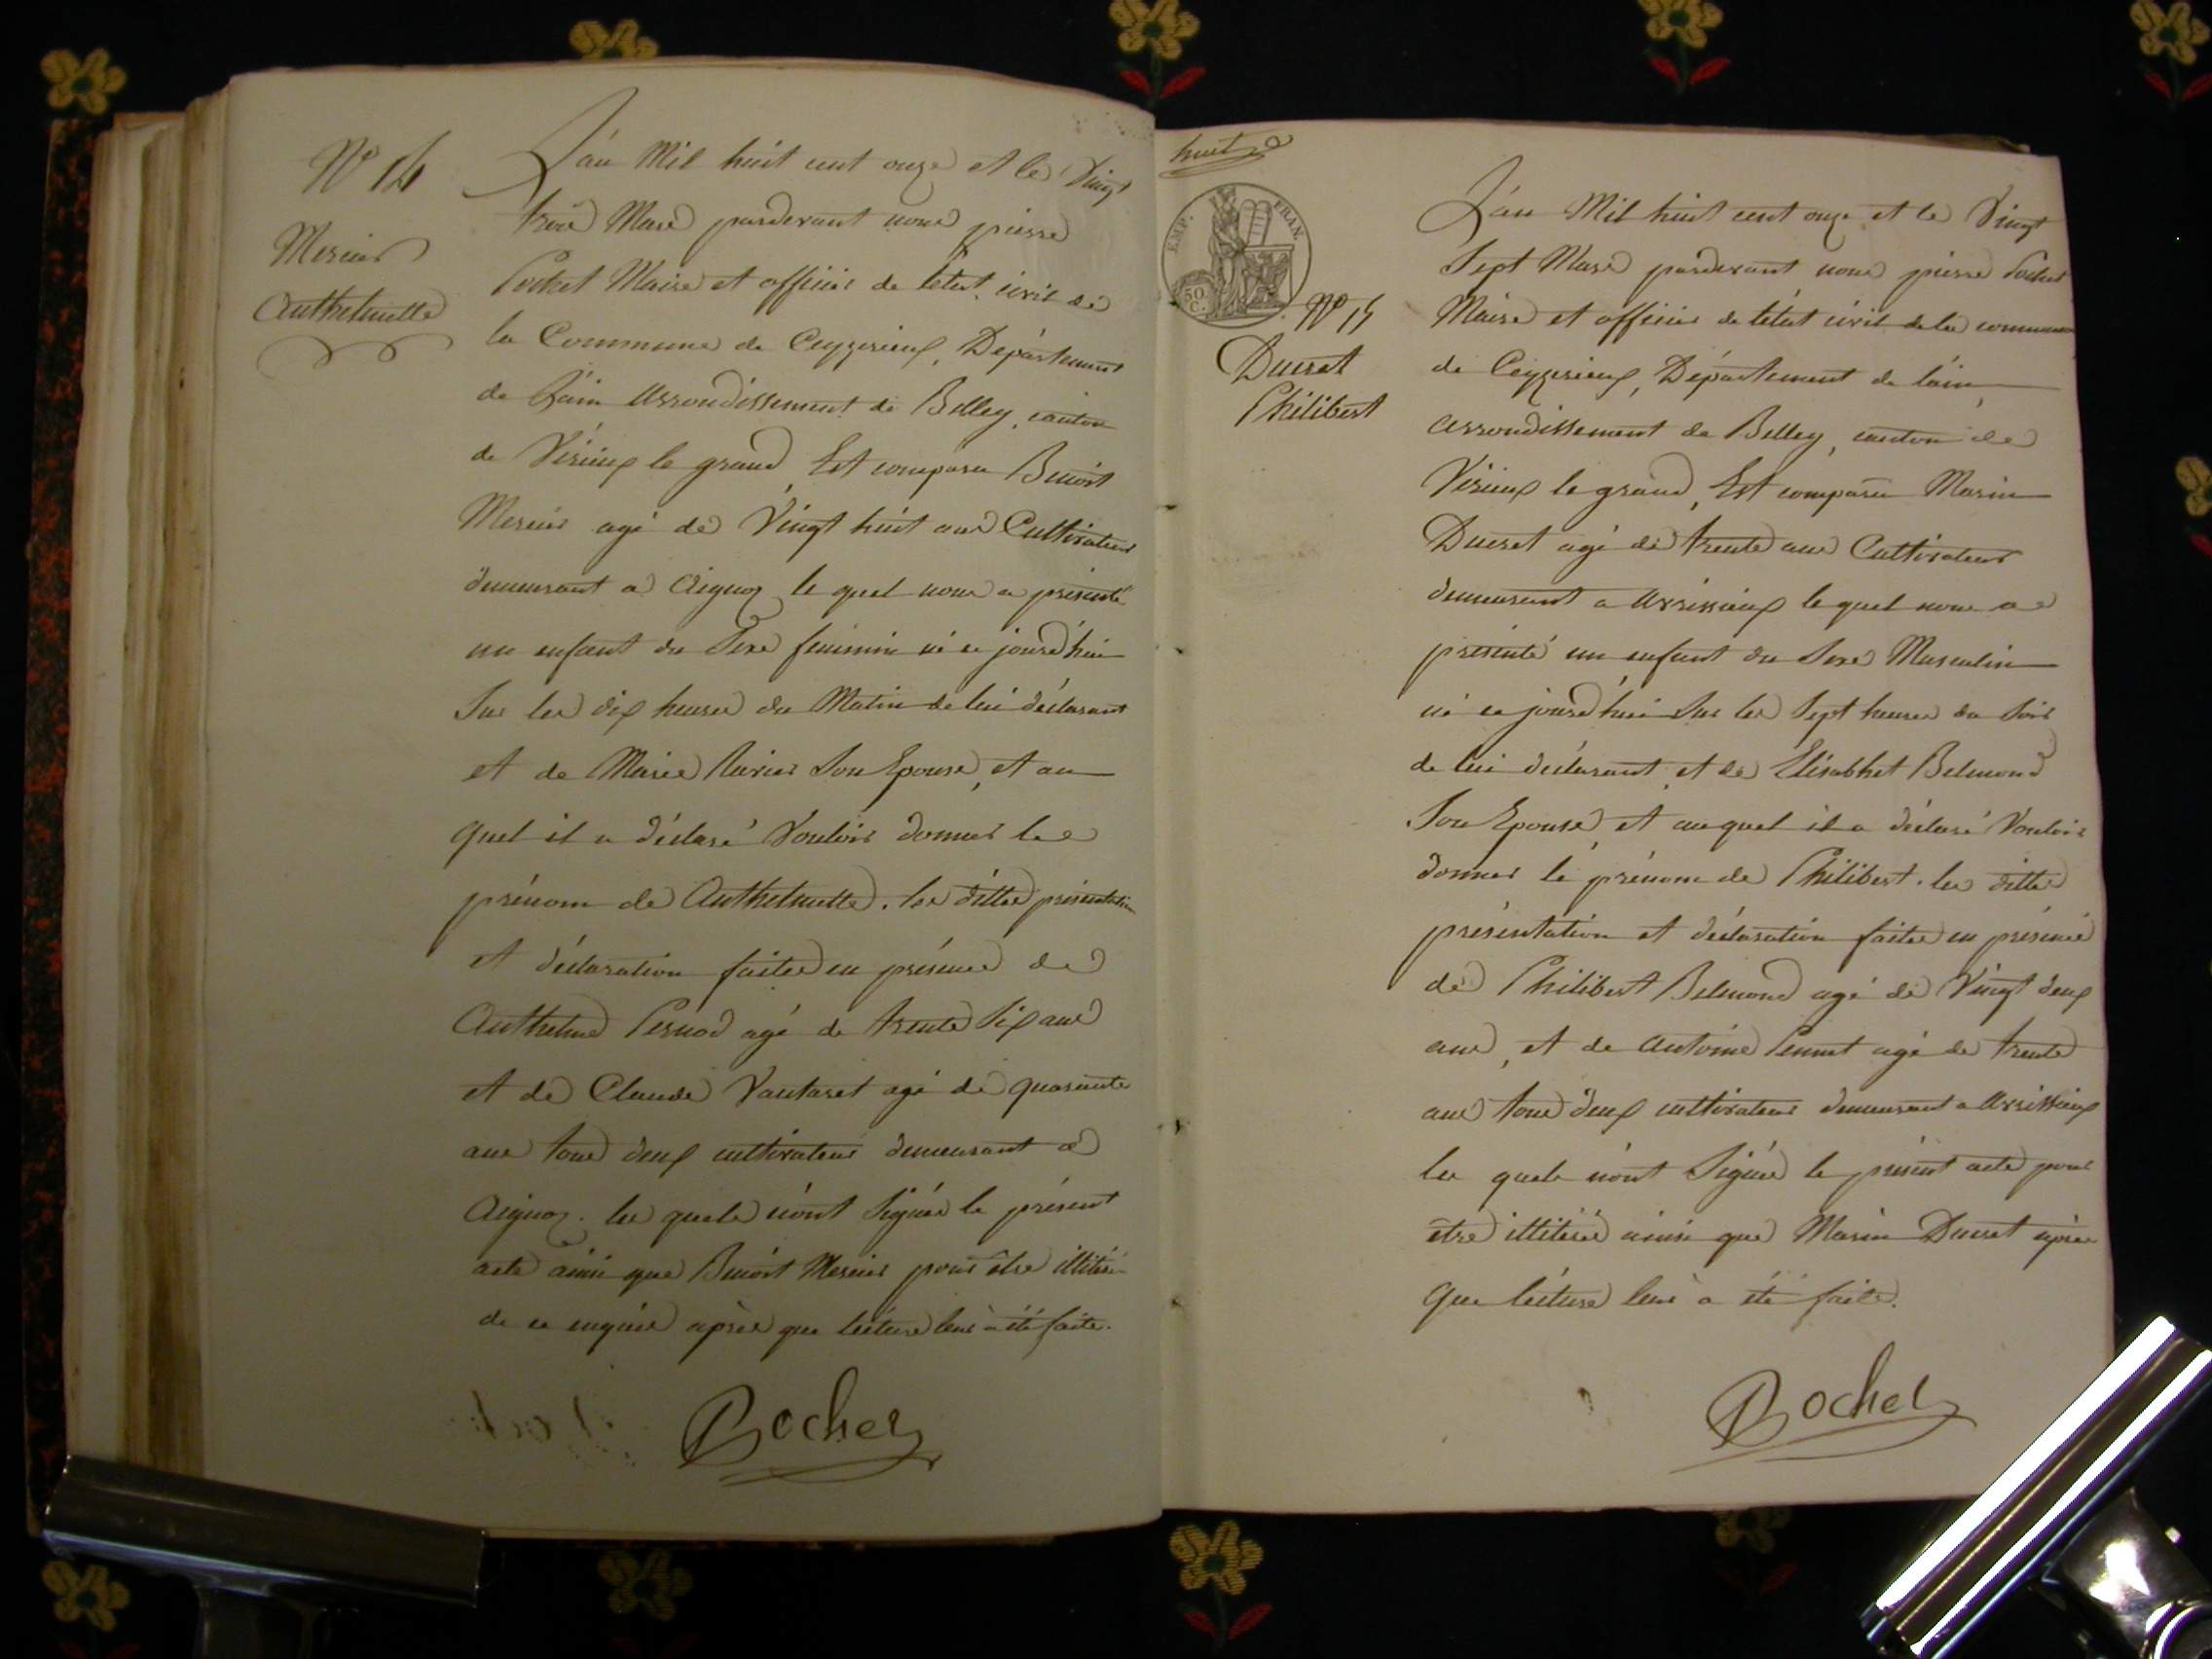 N° 14
Mercier
Anthelmette
L'an Mil huit cent onze et le Vingt
trois Mars pardevant nous pierre
Pochet Maire et officier de l'état civil de
la Commune de Ceyzerieux, Département
de L'ain Arrondissement de Belley, canton
de Virieux le grand, Est comparu Benoit
Mercier agé de Vingt huit ans Cultivateur
demeurant a Aignoz le quel nous a présenté
un enfant du Sexe feminin né ce jourd'hui
Sur les dix heures du Matin de lui déclarant
et de Marie Son Epouse, et au
quel il a déclaré Vouloir donner le
prénom de Anthelmette. les dittes présentation
et déclaration faites en présence de
Anthelme Pernod agé de trente Six ans
et de Claude Vautaret agé de quarante
ans tous deux cultivateurs demeurant a
Aignoz. les quels n'ont Signés le présent
acte ainsi que Benoit Mercier pour être illitéré
de ce enquis après que lécture leur a été faite.
Pochet
huit
EMP. FRAN.
50 C.
N° 15
Ducret
Philibert
L'an Mil huit cent onze et le Vingt
Sept Mars pardevant nous pierre Pochet
Maire et officier de l'état civil de la commune
de Ceyzerieux, Département de l'ain,
arrondissement de Belley, canton de
Virieux le grand, Est comparu Marin
Ducret agé de trente ans Cultivateur
demeurant a Avrissieux le quel nous a
présenté un enfant du Sexe Masculin
né ce jourd'hui Sur les Sept heures du Soir
de lui déclarant, et de Elisabhet Belmond
Son Epouse, et au quel il a déclaré Vouloir
donner le prénom de Philibert. les dittes
présentation et déclaration faites en présence
de Philibert Belmond agé de Vingt deux
ans, et de Antoine agé de trente
ans tous deux cultivateurs demeurant a Avrissieux
les quels n'ont Signés le présent acte pour
être illitérés ainsi que Marin Ducret après
que lécture leur a été faite.
Pochet